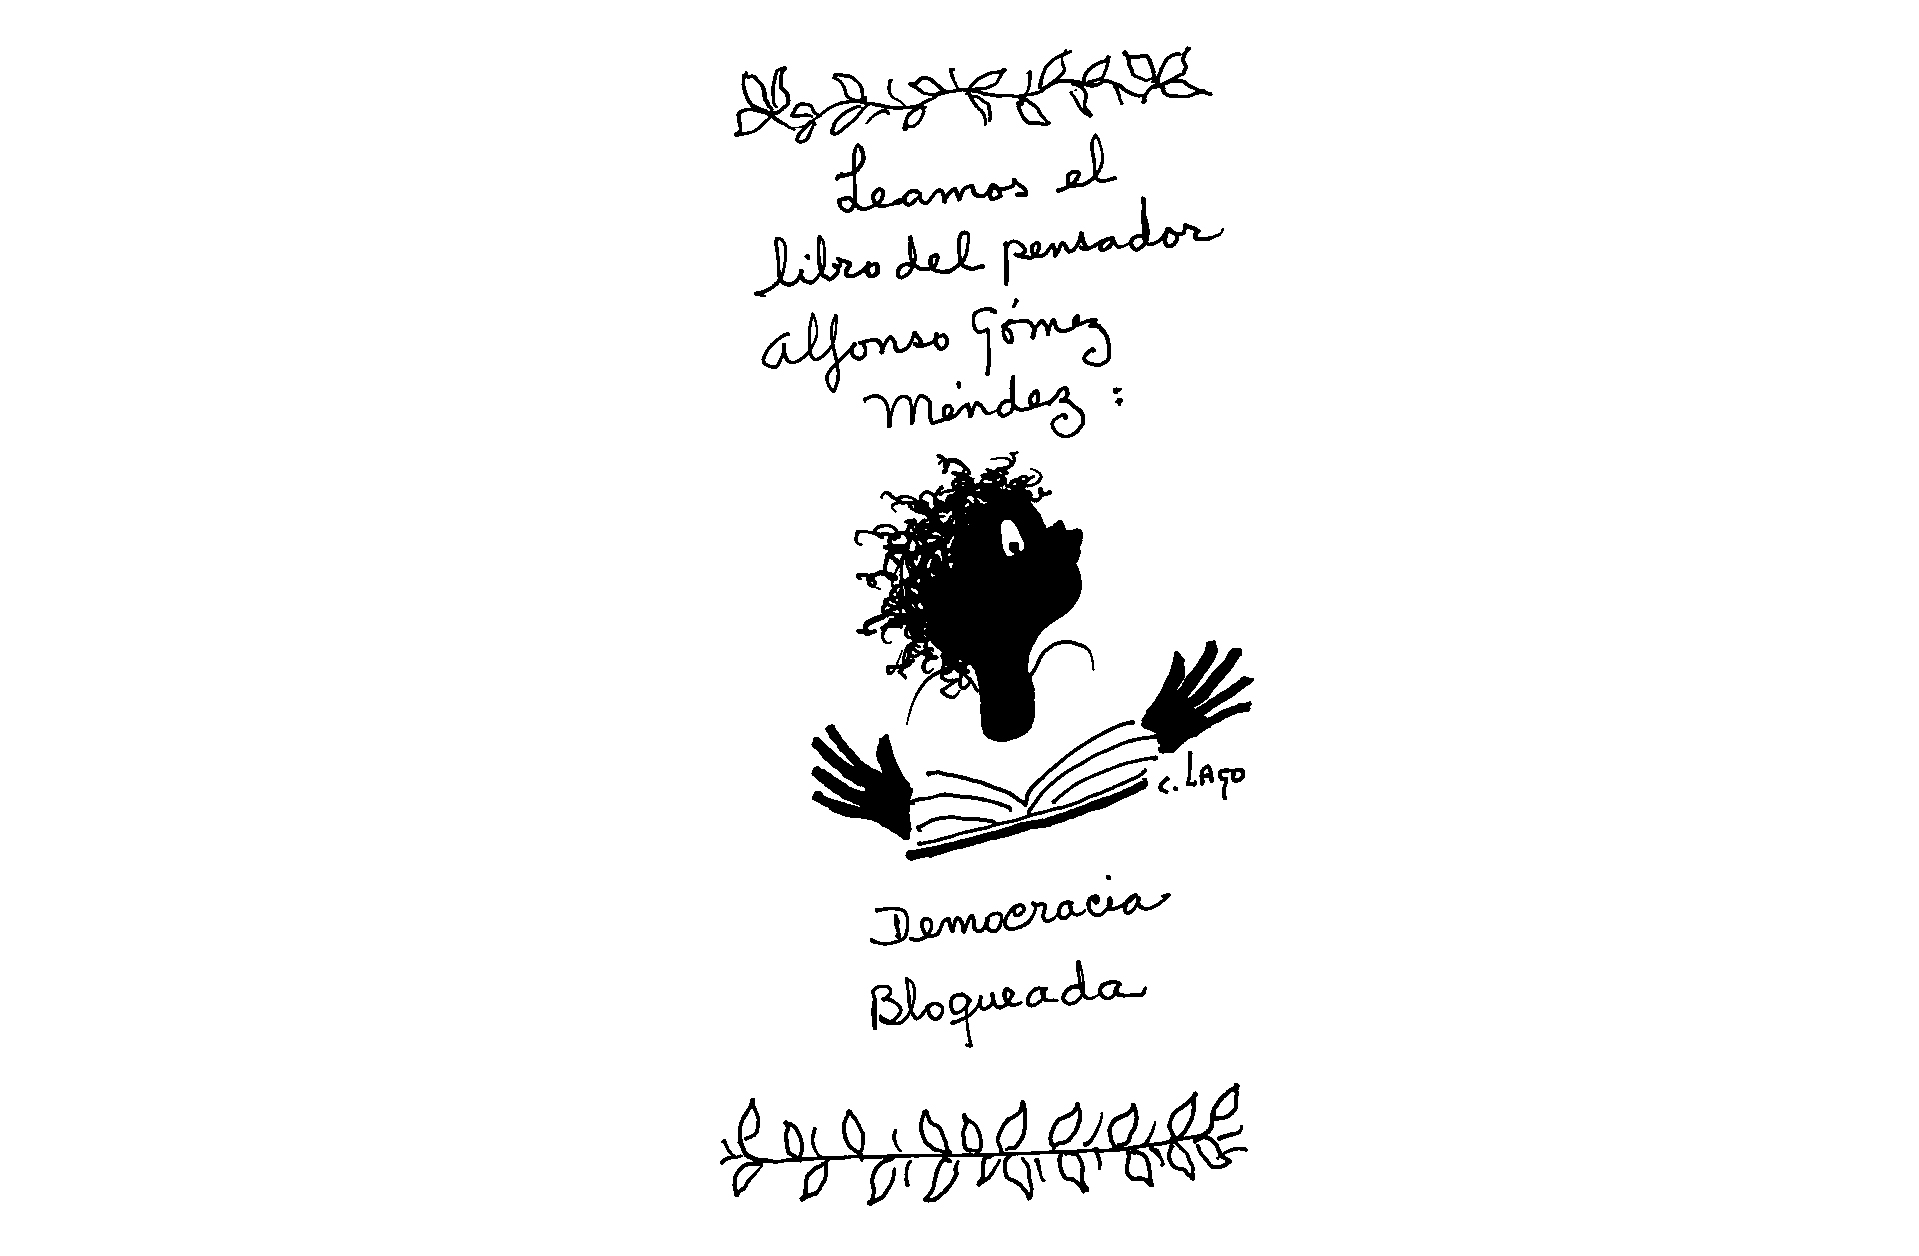 Leamos el
libro del pensador
Alfonso Gómez
Méndez:
C. LAGO
Democracia
Bloqueada